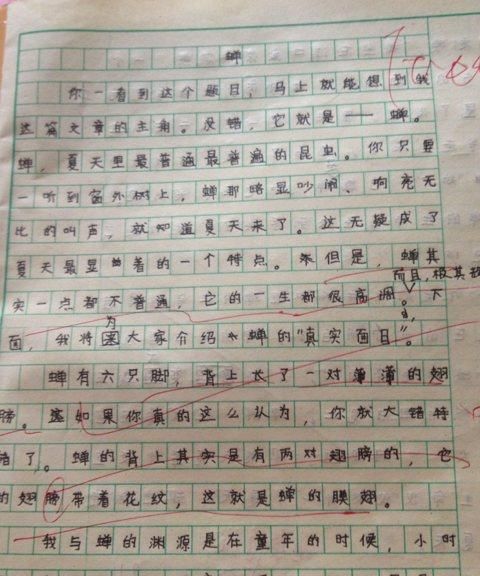 蝉
你一看到这个题目，马上就能想到我
这篇文章的主角。没错，它就是——蝉。
蝉，夏天里最普通最普遍的昆虫。你只要
一听到窗外树上，蝉那略显吵闹、响亮无
比的叫声，就知道夏天来了。这无疑成了
夏天最显着的一个特点。但是，蝉其
而且，极其
实一点都不普通，它的一生都很高调。下
为
面，我将大家介绍蝉的“真实面目”。
蝉有六只脚，背上长了一对薄薄的翅
膀。如果你真的这么认为，你就大错特
错了。蝉的背上其实是有两对翅膀的，它
的翅膀带着花纹，这就是蝉的膜翅。
我与蝉的渊源是在童年的时候，小时